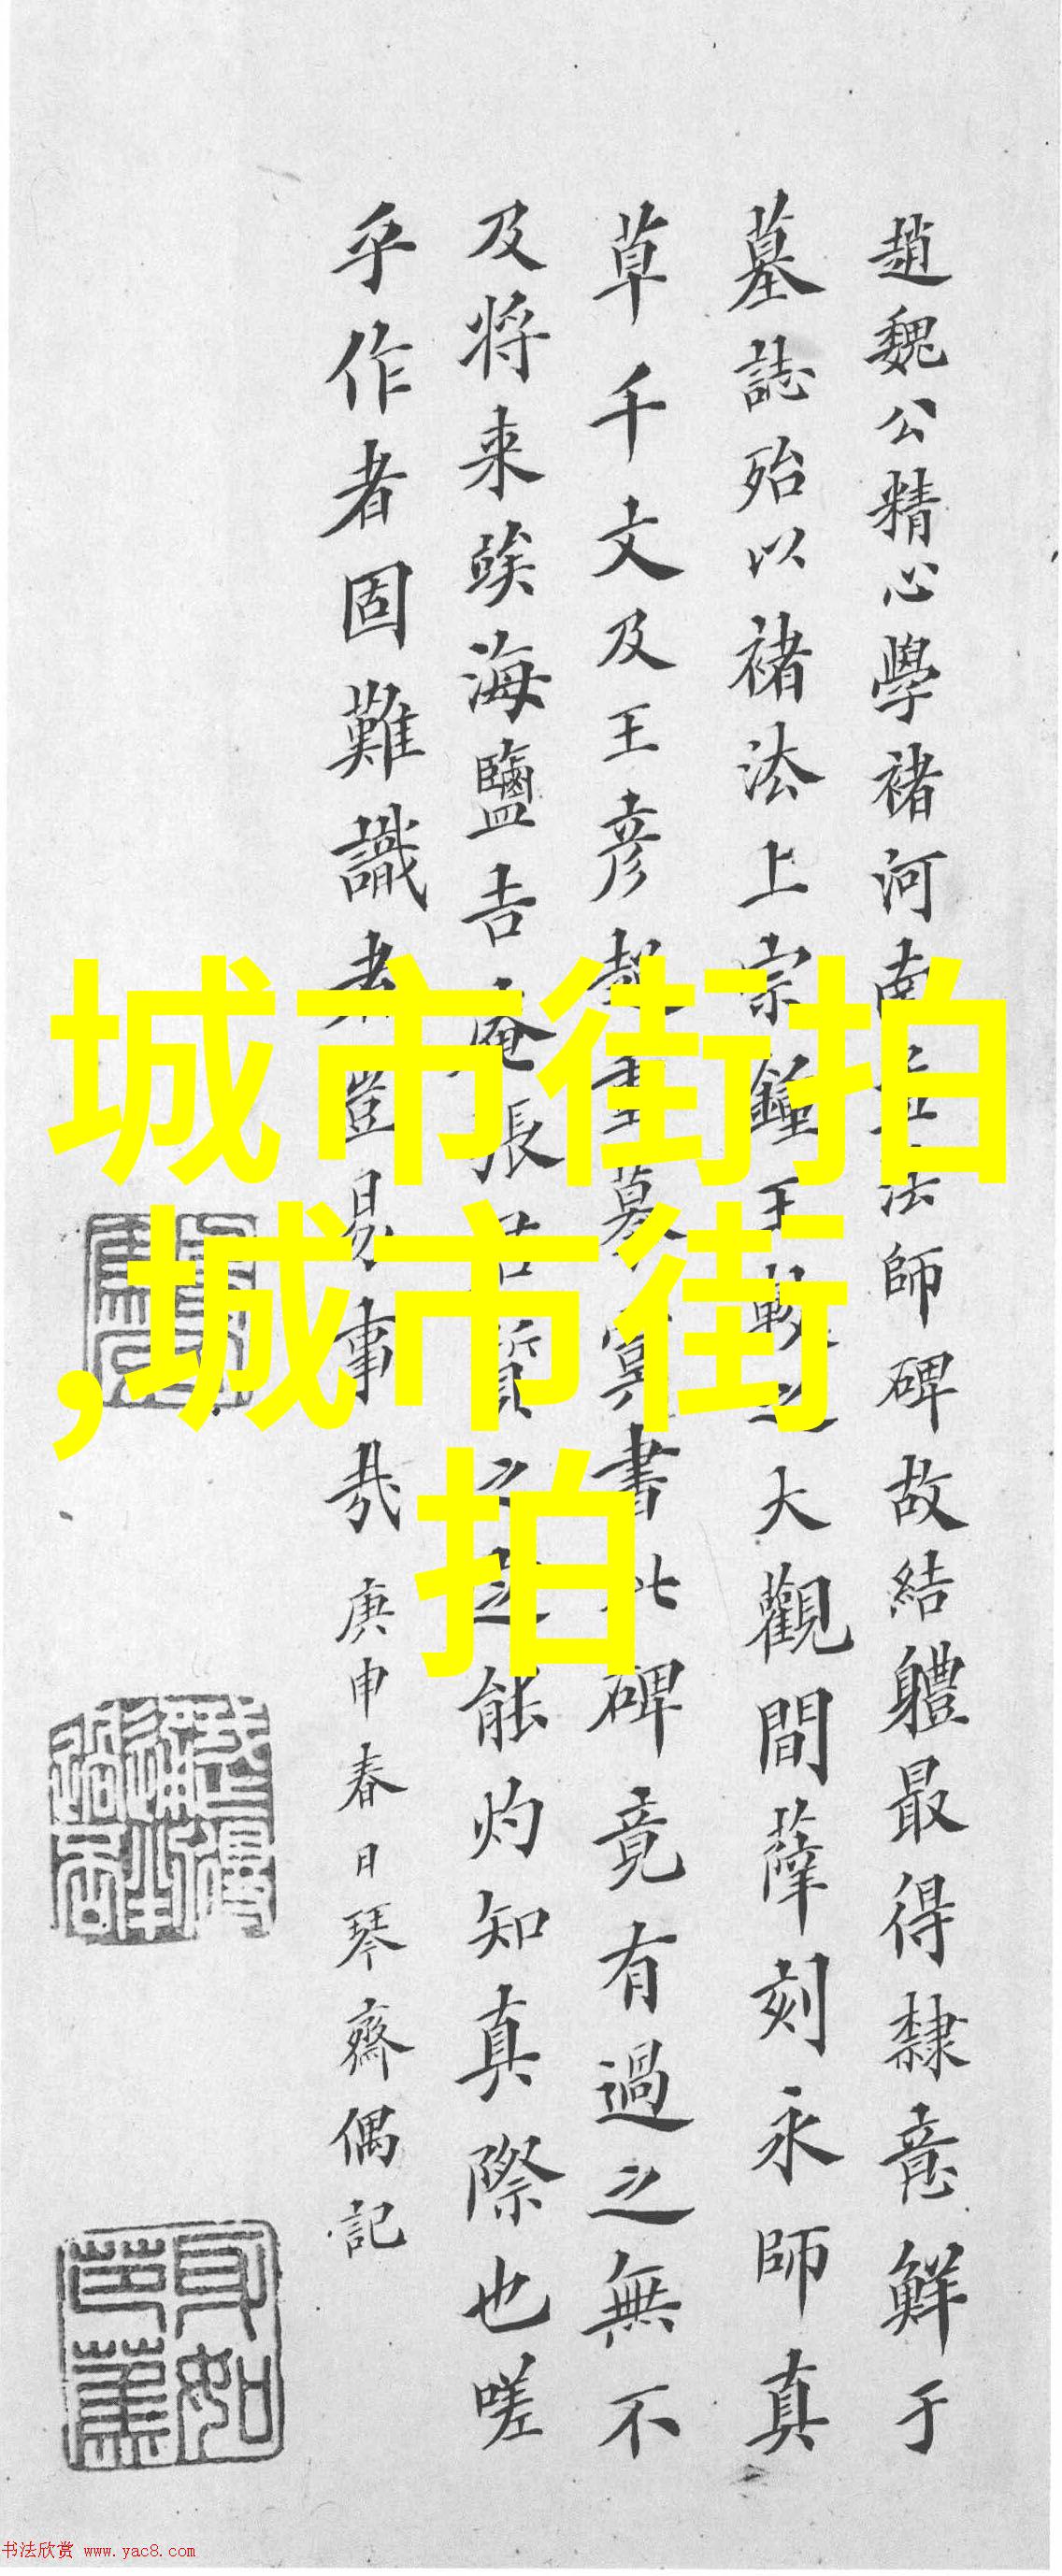 趙魏公精心學褚河南法師碑故結軆最得隸意鮮于
墓誌殆以褚法上宗鍾王大觀間薛刻永師真
草千文及王彦超墓書此碑竟有過之無不
及将来歸海鹽吉庵張之能灼知真際也嗟
乎作者固難識者豈易事哉庚申春日琴齋偶記
城市街拍
,城市街
拍
书法欣赏 www.yac8.com